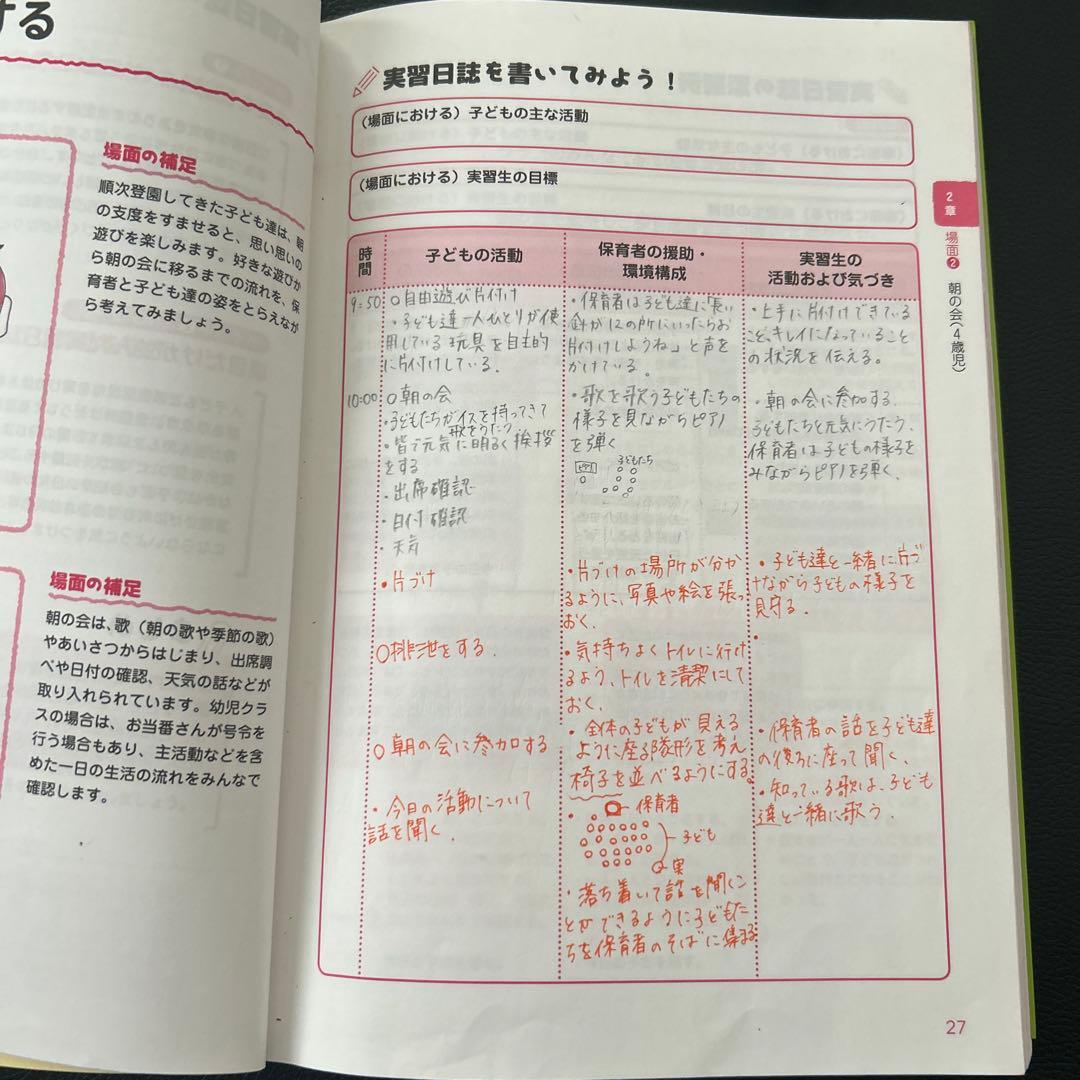 ける
場面の補足
順次登園してきた子ども達は、朝
の支度をすませると、思い思いの
遊びを楽しみます。好きな遊びか
ら朝の会に移るまでの流れを、保
育者と子ども達の姿をとらえなが
ら考えてみましょう。
場面の補足
朝の会は、歌（朝の歌や季節の歌）
やあいさつからはじまり、出席調
べや日付の確認、天気の話などが
取り入れられています。幼児クラ
スの場合は、お当番さんが号令を
行う場合もあり、主活動などを含
めた一日の生活の流れをみんなで
確認します。
実習日誌を書いてみよう！
（場面における）子どもの主な活動
（場面における）実習生の目標
時間
子どもの活動
保育者の援助・
環境構成
実習生の
活動および気づき
9:50
○自由遊び片付け
・子ども達一人ひとりが使
用している玩具を自主的
に片付けしている.
・保育者は子ども達に「長い
針が12の所にいったらお
片付けしようね」と声を
かけている。
・上手に片付けできている
こと、キレイになっていること
の状況を伝える。
10:00
○朝の会
・子どもたちがイスを持ってきて
歌をうたう
・皆で元気に明るく挨拶
をする
・出席確認
・日付確認
・天気
・歌を歌う子どもたちの
様子を見ながらピアノ
を弾く
ピアノ
子どもたち
・朝の会に参加する.
子どもたちと元気にうたう.
保育者は子どもの様子を
みながらピアノを弾く.
・片づけ
・片づけの場所が分か
るように、写真や絵を張っ
おく.
・子ども達と一緒に片づ
けながら子どもの様子を
見守る.
○排泄をする.
・気持ちよくトイレに行け
るよう、トイレを清潔にして
おく.
○朝の会に参加する
・全体の子どもが見える
ように座る隊形を考え
椅子を並べるようにする
・保育者の話を子ども達
の後ろに座って聞く.
・知っている歌は、子ども
達と一緒に歌う.
・今日の活動について
話を聞く.
保育者
子ども
実
・落ち着いて話を聞くこ
とができるように子どもた
ちを保育者のそばに集まる
2章
場面❷
朝の会（4歳児）
27